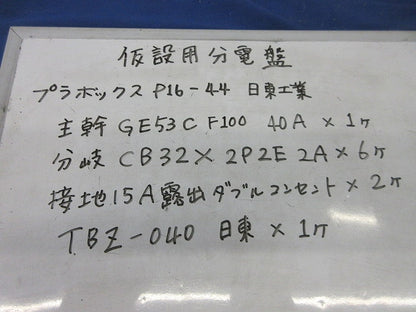 仮設用分電盤
プラボックス P16-44 日東工業
主幹 GE53C F100 40A × 1ヶ
分岐 CB32X 2P2E 2A × 6ヶ
接地15A露出ダブルコンセント × 2ヶ
TBZ-040 日東 × 1ヶ